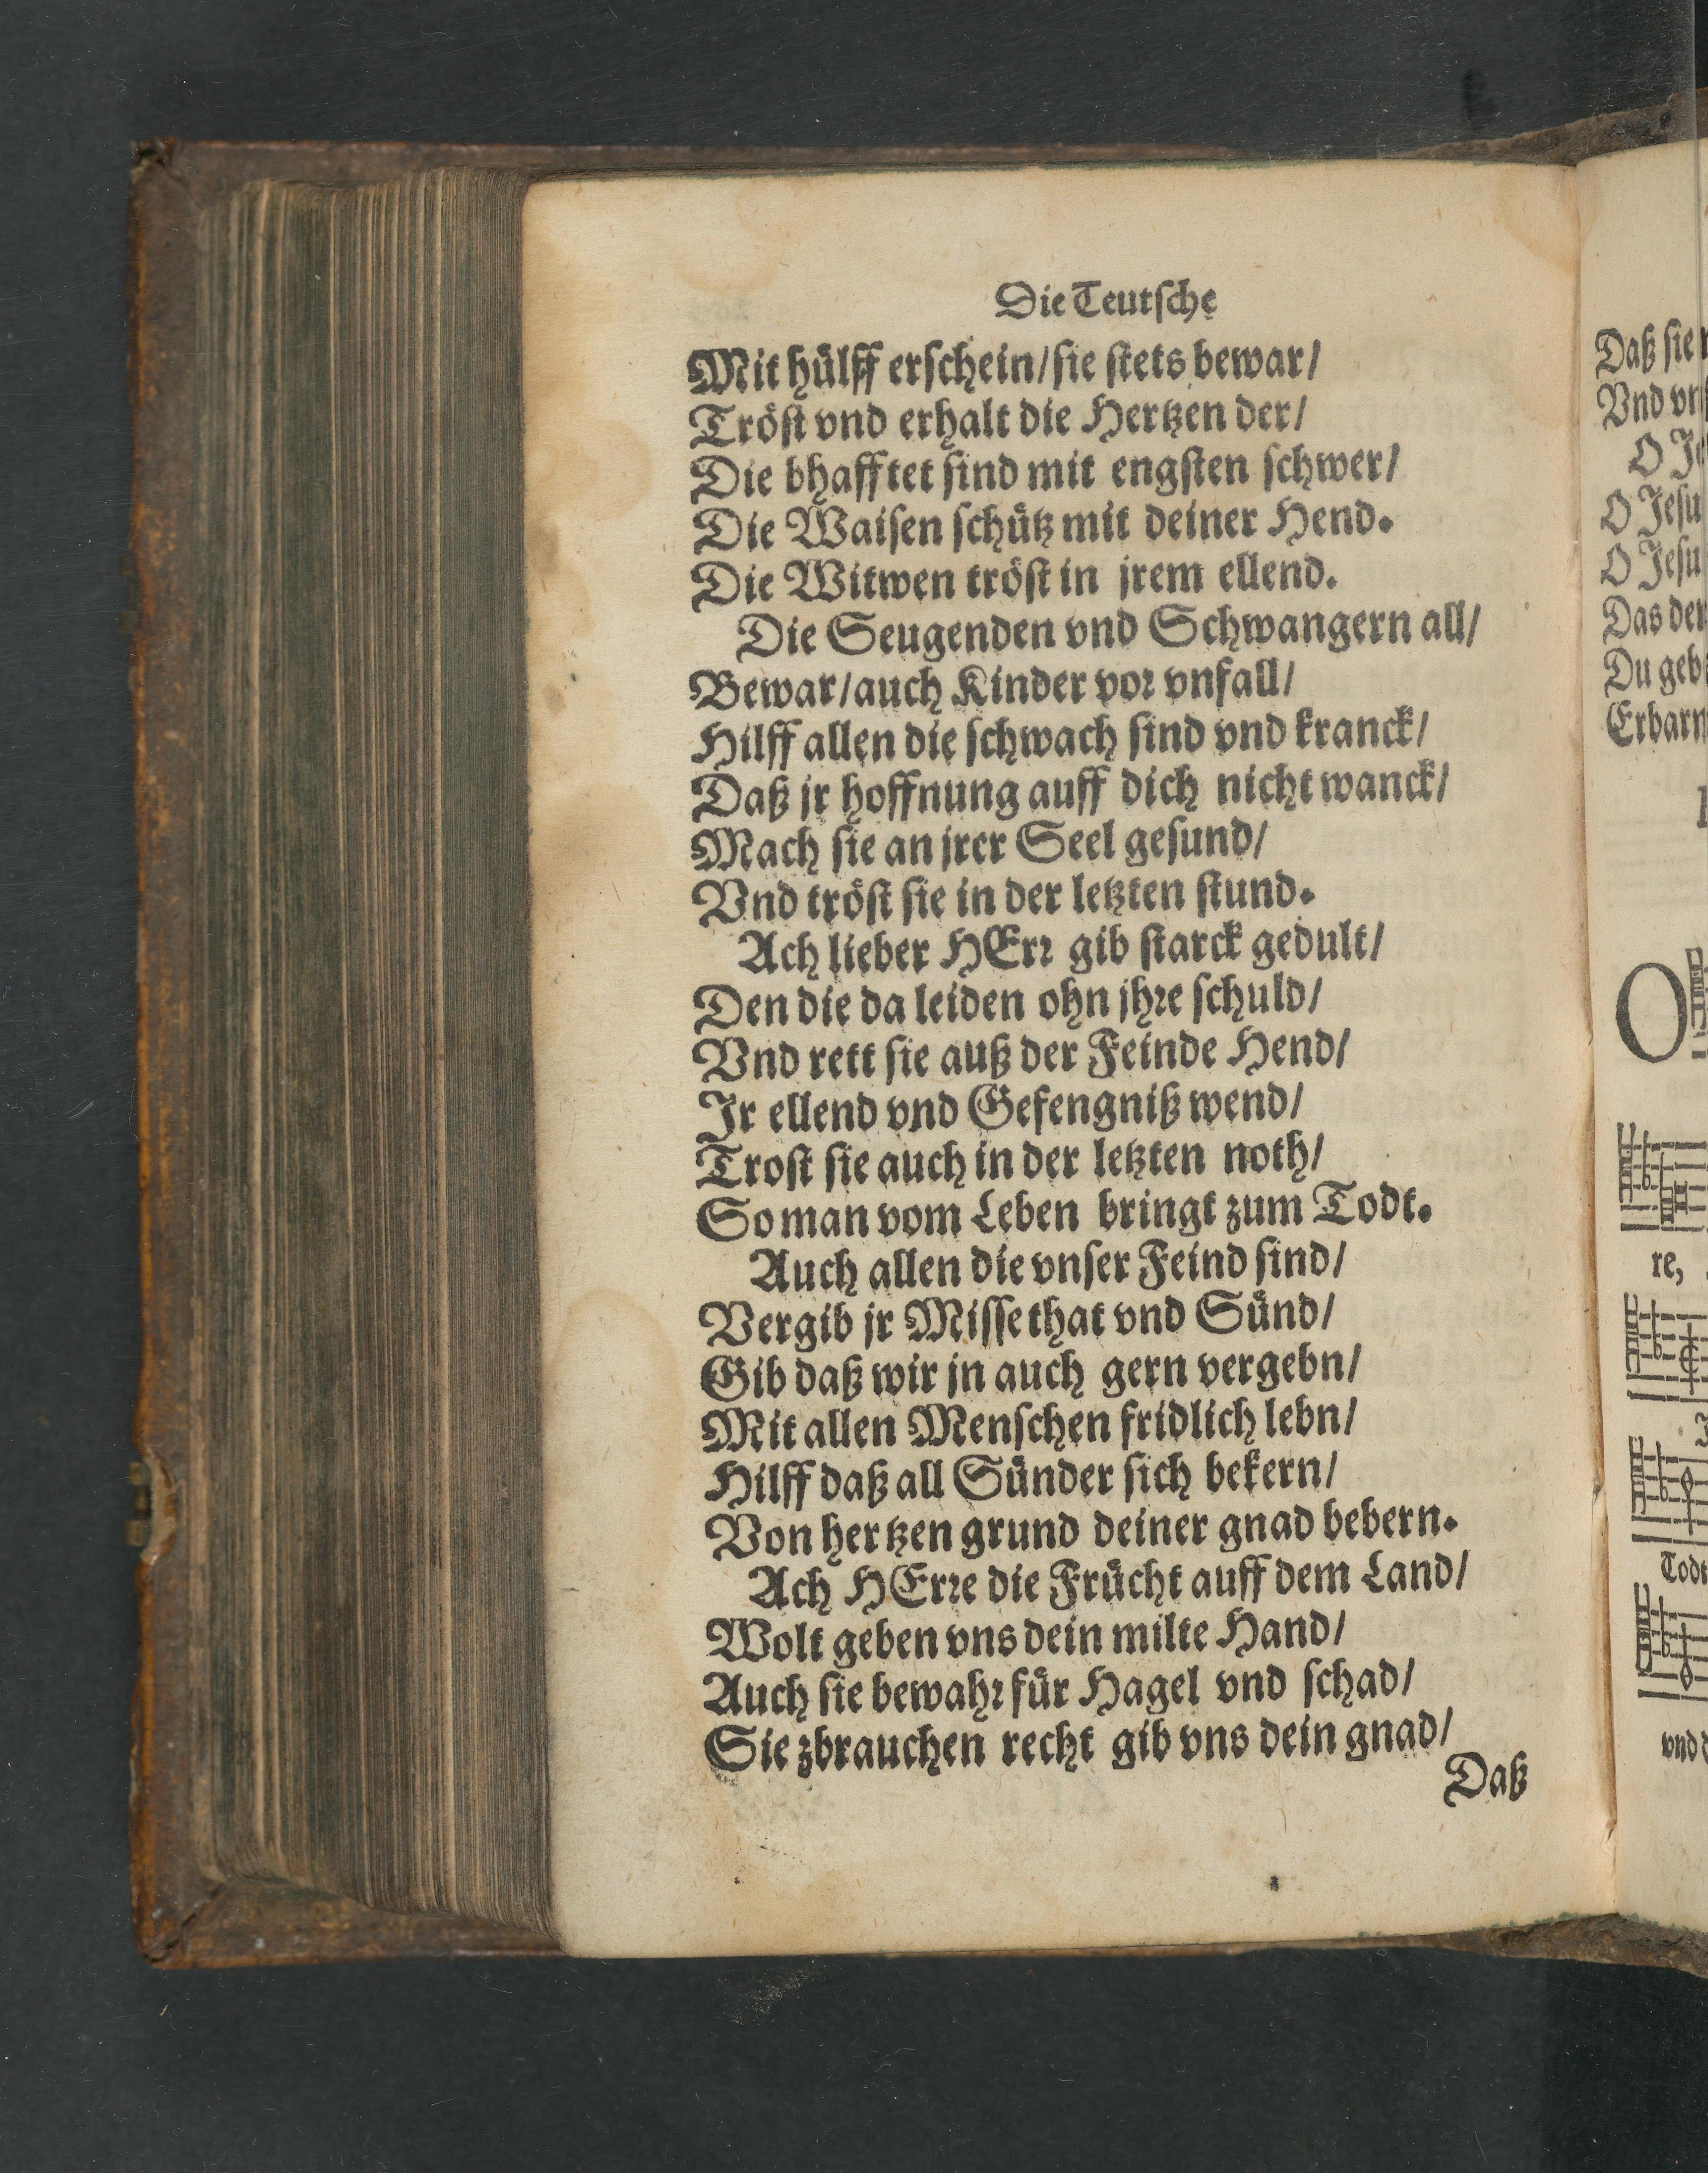 Die Teutſche
Mit huͤlff erſchein/ſie ſtets bewar/
Troͤſt vnd erhalt die Hertzen der/
Die bhafftet ſind mit engſten ſchwer/
Die Waiſen ſchuͤtz mit deiner Hend.
Die Witwen troͤſt in jrem ellend.
Die Seugenden vnd Schwangern all/
Bewar/auch Kinder voꝛ vnfall/
Hilff allen die ſchwach ſind vnd kranck/
Daß jr hoffnung auff dich nicht wanck/
Mach ſie an jrer Seel geſund/
Vnd troͤſt ſie in der letzten ſtund.
Ach lieber HErꝛ gib ſtarck gedult/
Den die da leiden ohn jhꝛe ſchuld/
Vnd rett ſie auß der Feinde Hend/
Jr ellend vnd Gefengniß wend/
Troſt ſie auch in der letzten noth/
So man vom Leben bringt zum Todt.
Auch allen die vnſer Feind ſind/
Vergib jr Miſſethat vnd Suͤnd/
Gib daß wir jn auch gern vergebn/
Mit allen Menſchen fridlich lebn/
Hilff daß all Suͤnder ſich bekern/
Von hertzen grund deiner gnad bebern.
Ach HErꝛe die Fruͤcht auff dem Land/
Wolt geben vns dein milte Hand/
Auch ſie bewahꝛ fuͤr Hagel vnd ſchad/
Sie zbrauchen recht gib vns dein gnad/
Daß
Daß ſie
Vnd
O
O Jeſu
O Jeſu
Das
Du
O
re,
Todt
vnd